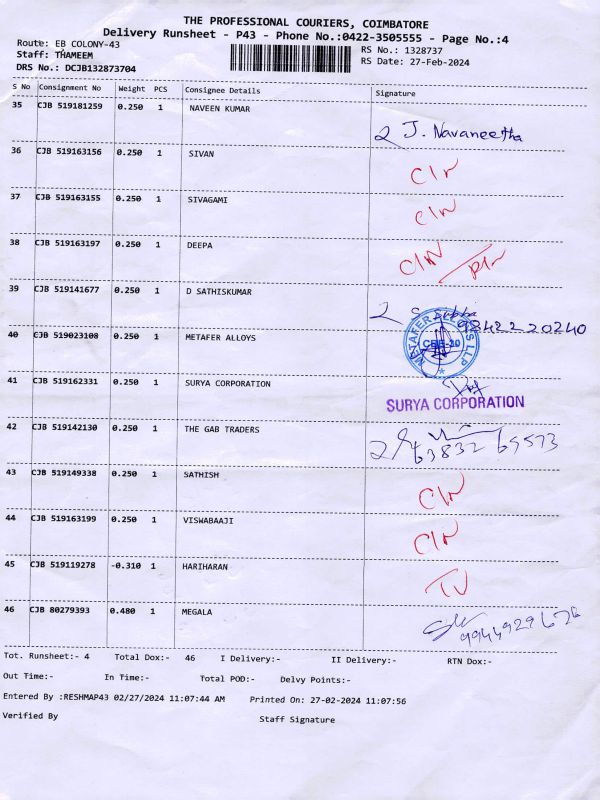 THE PROFESSIONAL COURIERS, COIMBATORE
Delivery Runsheet - P43 - Phone No.:0422-3505555 - Page No.:4
Route: EB COLONY-43 RS No.: 1328737
Staff: THAMEEM RS Date: 27-Feb-2024
DRS No.: DCJB132873704
S No Consignment No Weight PCS Consignee Details Signature
35 CJB 519181259 0.250 1 NAVEEN KUMAR J. Navaneetha
36 CJB 519163156 0.250 1 SIVAN
37 CJB 519163155 0.250 1 SIVAGAMI
38 CJB 519163197 0.250 1 DEEPA
39 CJB 519141677 0.250 1 D SATHISKUMAR
9842220240
40 CJB 519023108 0.250 1 METAFER ALLOYS
41 CJB 519162331 0.250 1 SURYA CORPORATION
SURYA CORPORATION
42 CJB 519142130 0.250 1 THE GAB TRADERS
43 CJB 519149338 0.250 1 SATHISH
44 CJB 519163199 0.250 1 VISWABAAJI
45 CJB 519119278 -0.310 1 HARIHARAN
46 CJB 80279393 0.480 1 MEGALA
Tot. Runsheet:- 4 Total Dox:- 46 I Delivery:- II Delivery:- RTN Dox:-
Out Time:- In Time:- Total POD:- Delvy Points:-
Entered By :RESHMAP43 02/27/2024 11:07:44 AM Printed On: 27-02-2024 11:07:56
Verified By Staff Signature